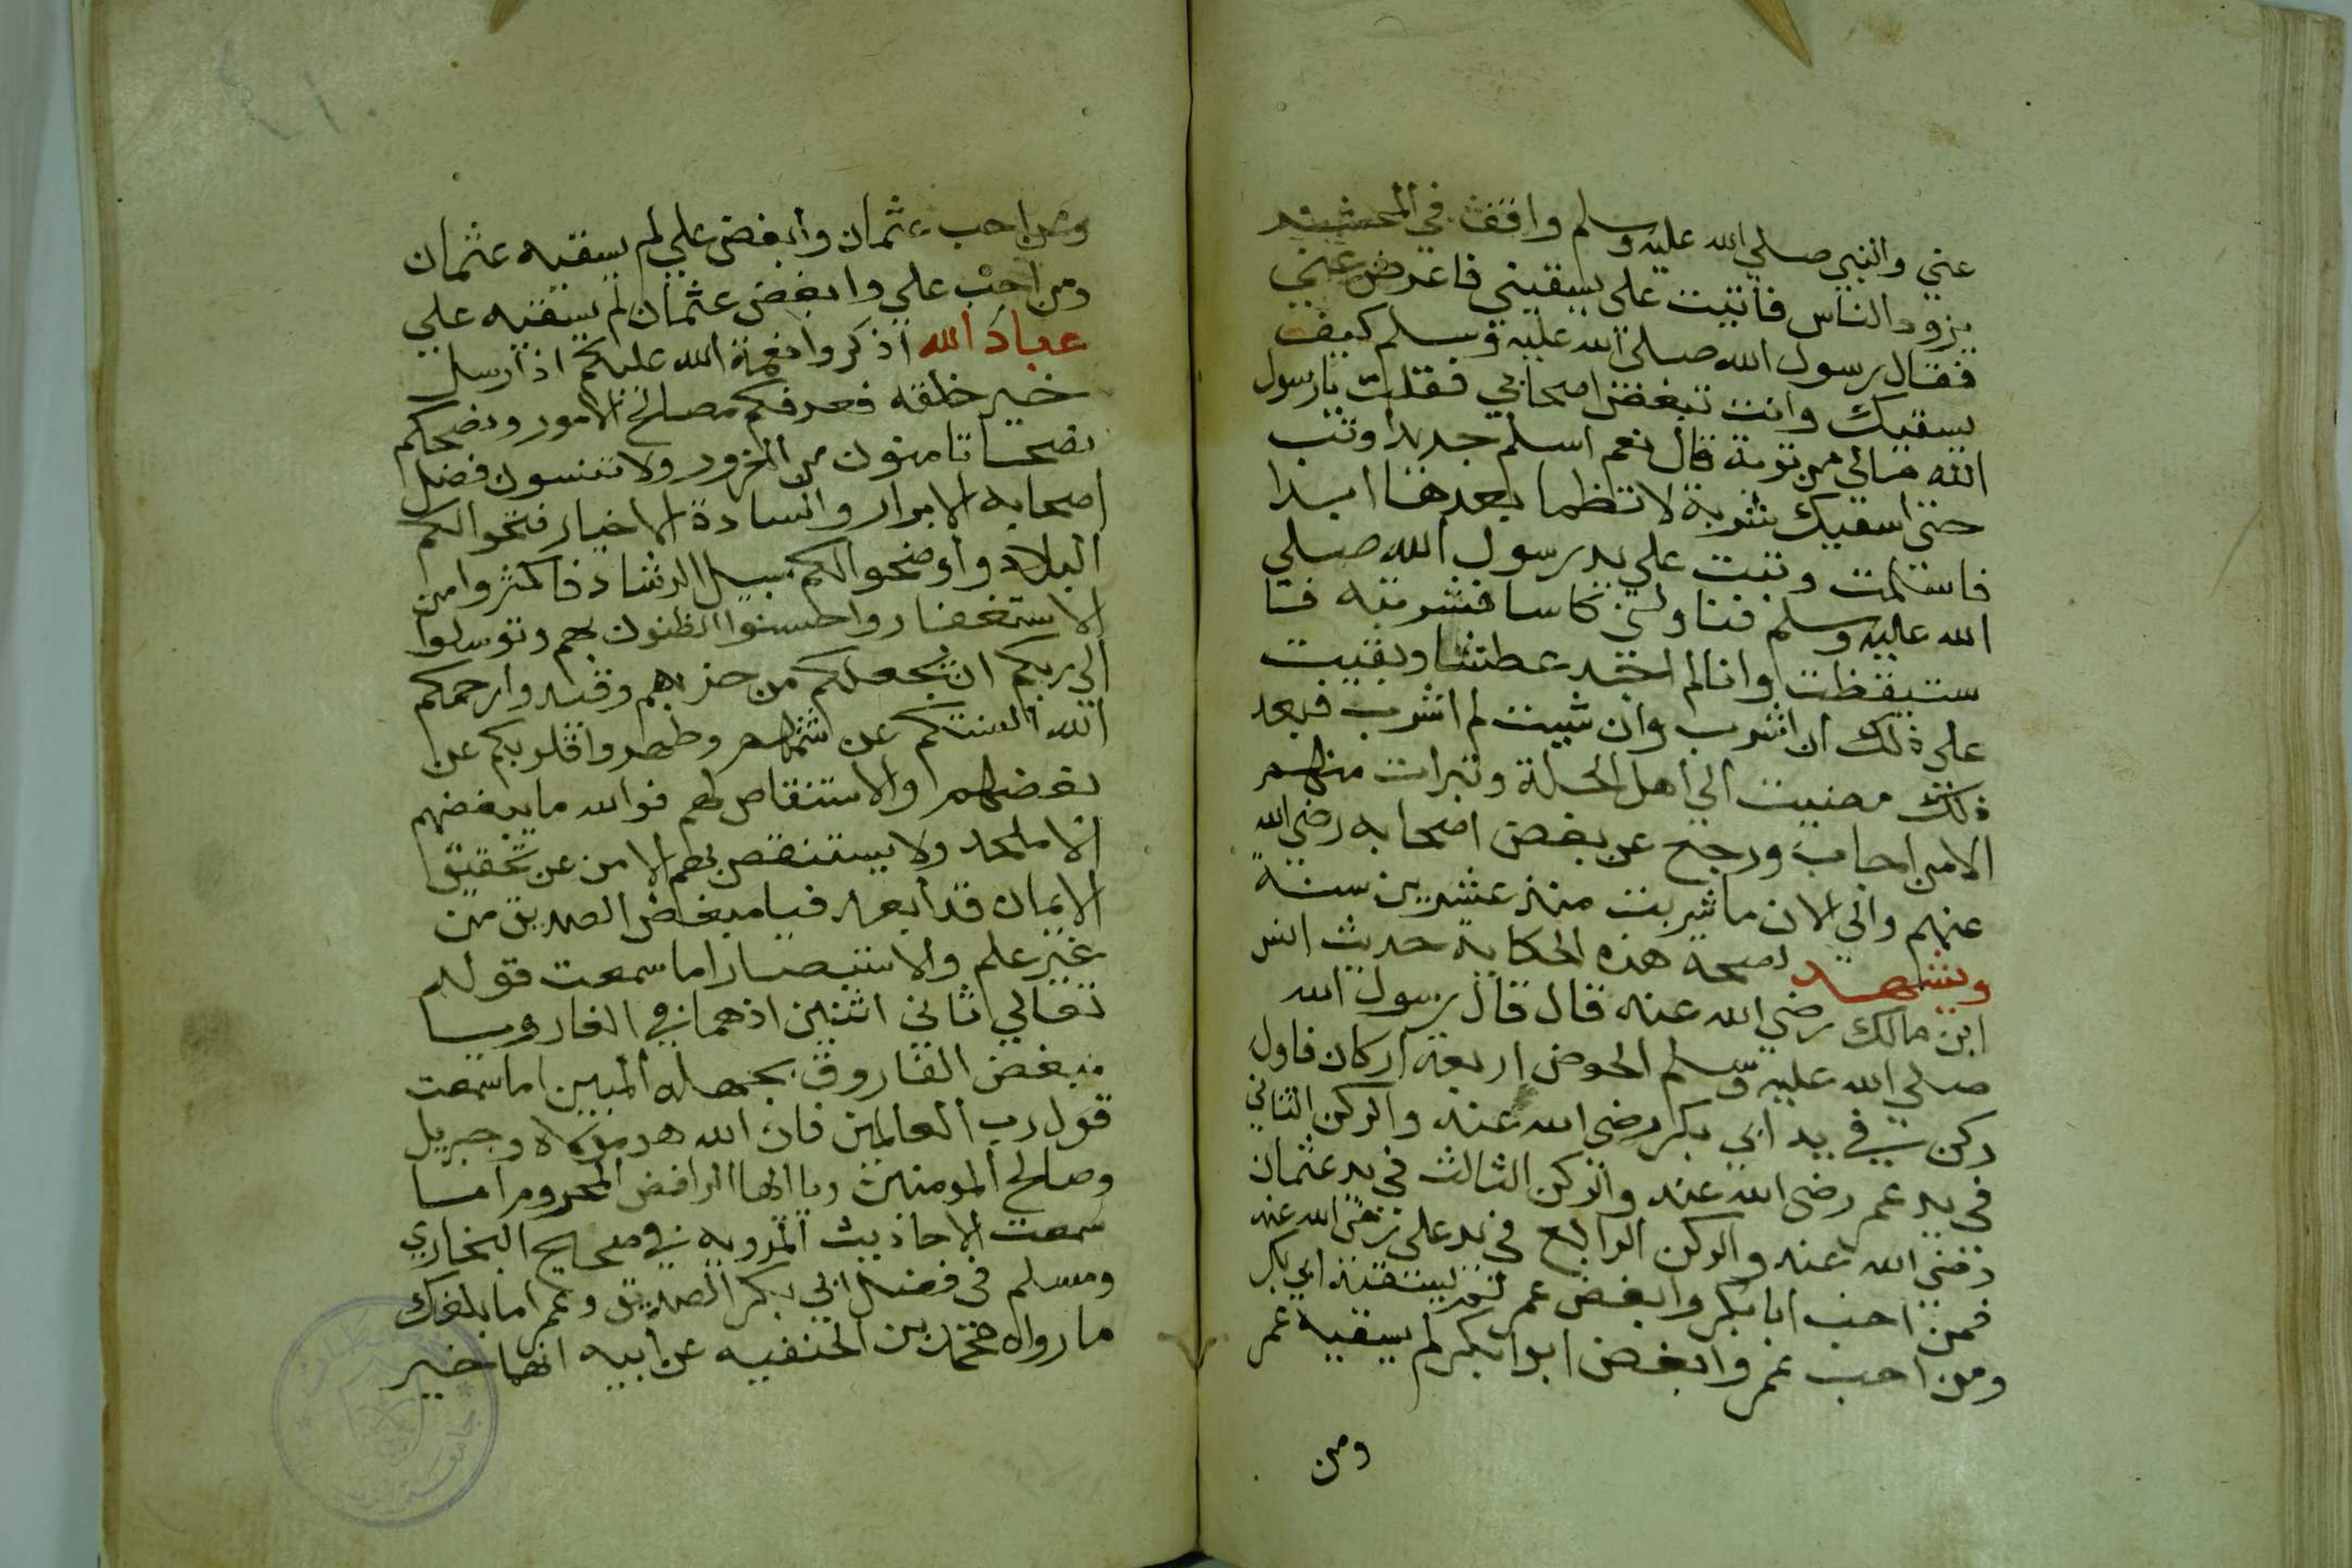 عني والنبي صلي الله عليه وسلم واقف في المحشر
يزود الناس فاتيت علي يسقيني فاعرض عني
فقال رسول الله صلي الله عليه وسلم كيف
يسقيك وانت تبغض اصحابي فقلت يا رسول
الله مالي من توبة قال نعم اسلم جديدا وتب
حتي اسقيك شربة لا تظما بعدها ابدا
فاسلمت وتبت علي يد رسول الله صلي
الله عليه وسلم فناولني كاسا فشربته فا
ستيقظت وانا لم اجد عطشا وبقيت
علي ذلك ان اشرب وان شيت لم اشرب فبعد
ذلك مضيت الي اهل الحلة وتبرات منهم
الا من اجاب ورجع عن بغض اصحابه رضي الله
عنهم والي الان ما شربت منذ عشرين سنة
ويشهد لصحة هذه الحكاية حديث انس
ابن مالك رضي الله عنه قال قال رسول الله
صلي الله عليه وسلم الحوض اربعة اركان فاول
ركن في يد ابي بكر رضي الله عنه والركن الثاني
في يد عمر رضي الله عنه والركن الثالث في يد عثمان
رضي الله عنه والركن الرابع في يد علي رضي الله عنه
فمن احب ابا بكر وابغض عمر لم يسقيه ابي بكر
ومن احب عمر وابغض ابوا بكر لم يسقيه عمر
ومن
ومن احب عثمان وابغض علي لم يسقيه عثمان
ومن احب علي وابغض عثمان لم يسقيه علي
عباد الله اذكروا نعمة الله عليكم اذ ارسل
خير خلقه فعرفكم مصالح الامور ونصحكم
نصحا تامنون من الغرور ولا تنسون فضل
اصحابه الابرار والسادة الاخيار فتحوا لكم
البلاد واوضحوا لكم سبيل الرشاد فاكثروا من
الاستغفار واحسنوا الظنون بهم وتوسلوا
الي ربكم ان يجعلكم من حزبهم وقيدوا رحمكم
الله السنتكم عن شتمهم وطهروا قلوبكم عن
بغضهم والاستنقاص لهم فوالله ما يبغضهم
الا ملحد ولا يستنقص بهم الا من عن تحقيق
الايمان قد ابعد فيا مبغض الصديق من
غير علم والاستبصار اما سمعت قوله
تعالي ثاني اثنين اذ هما في الغار ويا
مبغض الفاروق بجهله المبين اما سمعت
قول رب العالمين فان الله هو مولاه وجبريل
وصالح المومنين ويا ايها الرافض المحروم اما
سمعت الاحاذيث المرويه في صحيح البخاري
ومسلم في فضل ابي بكر الصديق وعمر اما بلغك
ما رواه محمد بن الحنفيه عن ابيه انهما خير